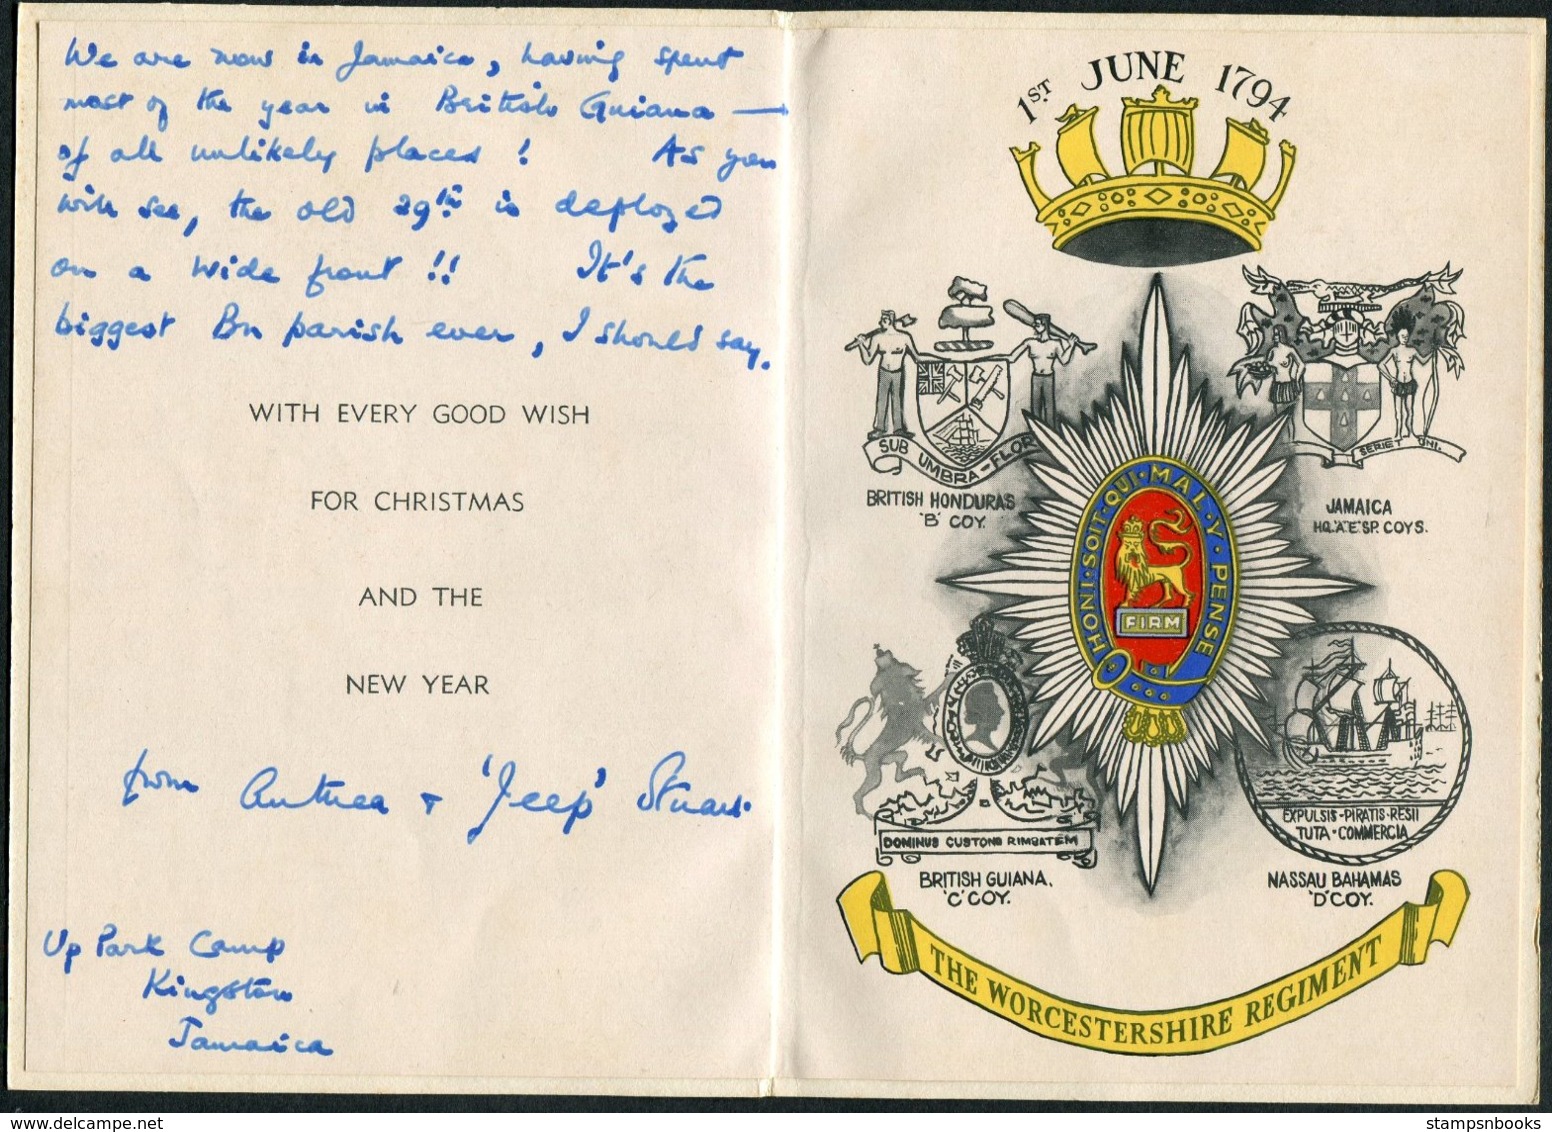 We are now in Jamaica, having spent
most of the year in British Guiana —
of all unlikely places! As you
will see, the old 29th is deployed
on a wide front!! It's the
biggest Bn parish ever, I should say.
WITH EVERY GOOD WISH
FOR CHRISTMAS
AND THE
NEW YEAR
from Anthea + 'Jeep' Stuart.
Up Park Camp
Kingston
Jamaica
1ST JUNE 1794
SUB UMBRA-FLOR
BRITISH HONDURAS
'B' COY.
SERIET UNI.
JAMAICA
HQ. 'A' 'E' SP. COYS.
HONI·SOIT·QUI·MAL·Y·PENSE
FIRM
DOMINUS CUSTONS RIMBATEM
BRITISH GUIANA.
'C' COY.
EXPULSIS-PIRATIS·RESTI
TUTA·COMMERCIA
NASSAU BAHAMAS
'D' COY.
THE WORCESTERSHIRE REGIMENT
stampsnbooks